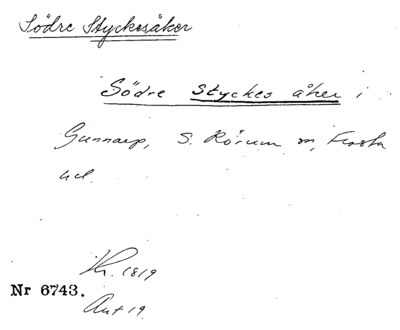 Södre Styckesåker
Södre Styckes åker i
Gunnarp, S. Rörum sn, Frosta
hd.
Kr. 1819
Nr 6743.
Ant 19